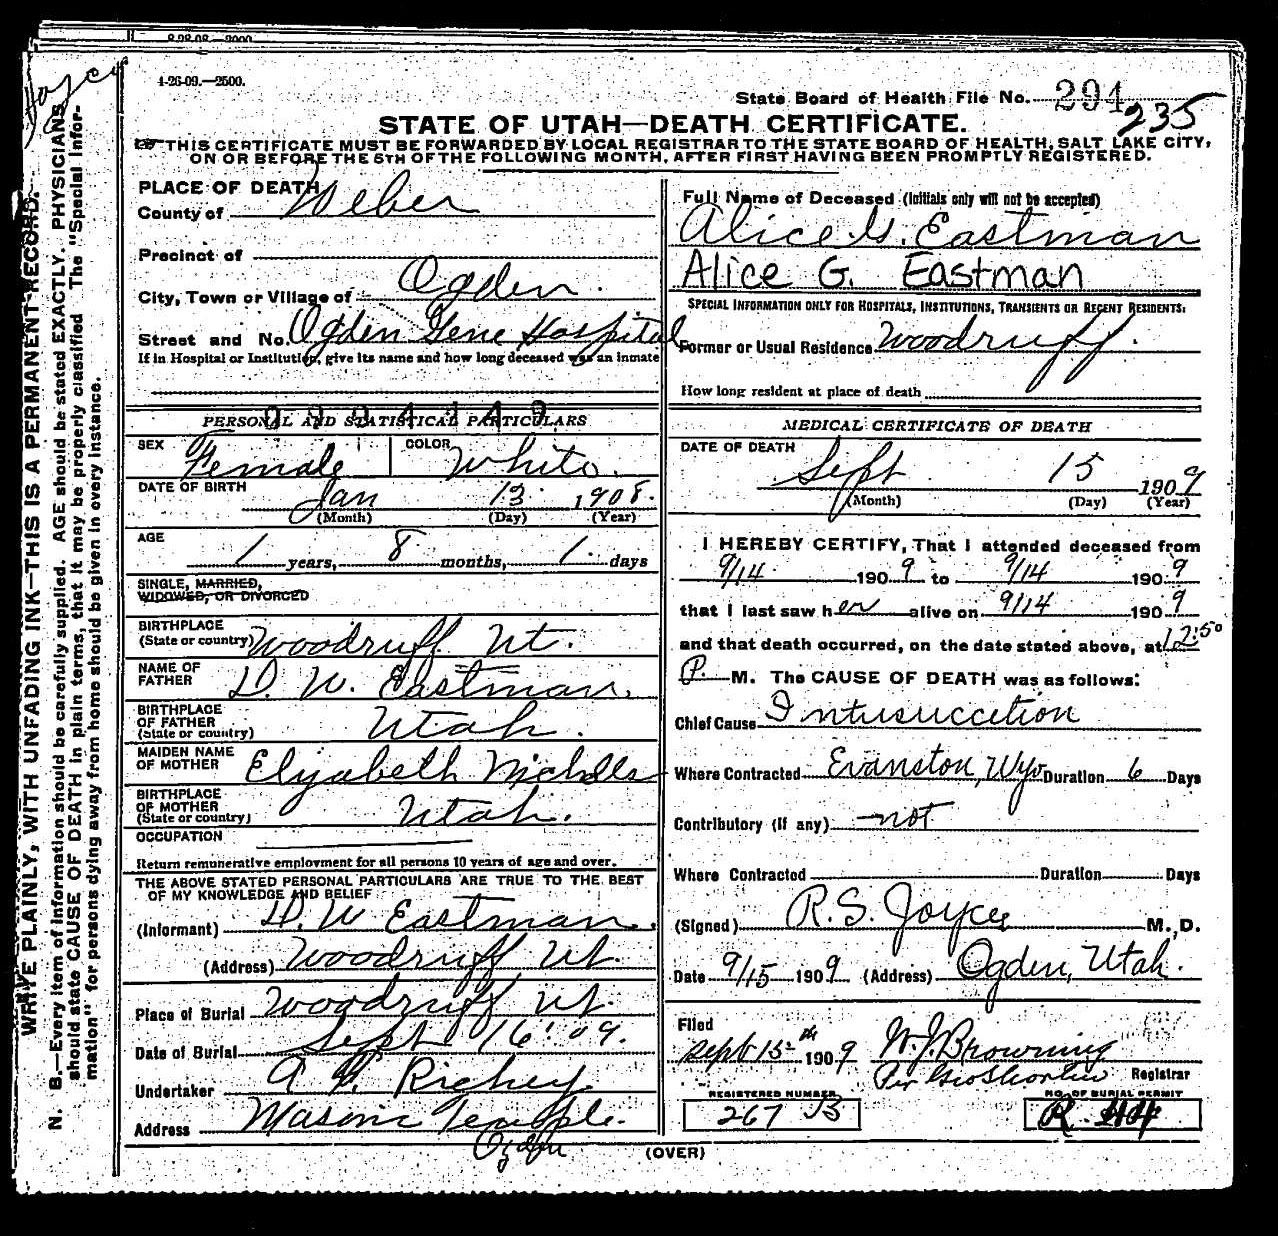 8-28-08.—2000
4-26-09.—2500.
Joyce
State Board of Health File No. 294
235
STATE OF UTAH—DEATH CERTIFICATE.
THIS CERTIFICATE MUST BE FORWARDED BY LOCAL REGISTRAR TO THE STATE BOARD OF HEALTH, SALT LAKE CITY,
ON OR BEFORE THE 5TH OF THE FOLLOWING MONTH, AFTER FIRST HAVING BEEN PROMPTLY REGISTERED.
WRITE PLAINLY, WITH UNFADING INK—THIS IS A PERMANENT RECORD.
N. B.—Every item of information should be carefully supplied. AGE should be stated EXACTLY. PHYSICIANS
should state CAUSE OF DEATH in plain terms, that it may be properly classified The "Special Infor-
mation" for persons dying away from home should be given in every instance.
PLACE OF DEATH
County of Weber
Precinct of
City, Town or Village of Ogden.
Street and No. Ogden Gene Hospital
If in Hospital or Institution, give its name and how long deceased was an inmate
PERSONAL AND STATISTICAL PARTICULARS
SEX Female COLOR White.
DATE OF BIRTH Jan 13 1908.
(Month) (Day) (Year)
AGE
1 years, 8 months, 1. days
SINGLE, MARRIED,
WIDOWED, OR DIVORCED
BIRTHPLACE
(State or country) Woodruff Ut.
NAME OF
FATHER D. W. Eastman.
BIRTHPLACE
OF FATHER
(State or country) Utah.
MAIDEN NAME
OF MOTHER Elyzabeth Nicholls
BIRTHPLACE
OF MOTHER
(State or country) Utah.
OCCUPATION
Return remunerative employment for all persons 10 years of age and over.
THE ABOVE STATED PERSONAL PARTICULARS ARE TRUE TO THE BEST
OF MY KNOWLEDGE AND BELIEF
(Informant) D. W Eastman.
(Address) Woodruff Ut.
Place of Burial Woodruff Ut.
Date of Burial Sept 16. 09.
Undertaker A Richey
Address Masonic Temple.
Ogden
Full Name of Deceased (Initials only will not be accepted)
Alice G. Eastman
Alice G. Eastman
SPECIAL INFORMATION ONLY FOR HOSPITALS, INSTITUTIONS, TRANSIENTS OR RECENT RESIDENTS:
Former or Usual Residence Woodruff.
How long resident at place of death
MEDICAL CERTIFICATE OF DEATH
DATE OF DEATH
Sept 15 1909
(Month) (Day) (Year)
I HEREBY CERTIFY, That I attended deceased from
9/14 1909 to 9/14 1909
that I last saw her alive on 9/14 1909
and that death occurred, on the date stated above, at 12:50
P. M. The CAUSE OF DEATH was as follows:
Chief Cause Intusuccetion
Where Contracted Evanston, Wyo Duration 6 Days
Contributory (if any) not
Where Contracted Duration Days
(Signed) R.S. Joyce M., D.
Date 9/15 1909 (Address) Ogden, Utah.
Filed
Sept 15th 1909 W. J. Browning
Per Geo Shorten Registrar
REGISTERED NUMBER
267 B
NO. OF BURIAL PERMIT
R
(OVER)